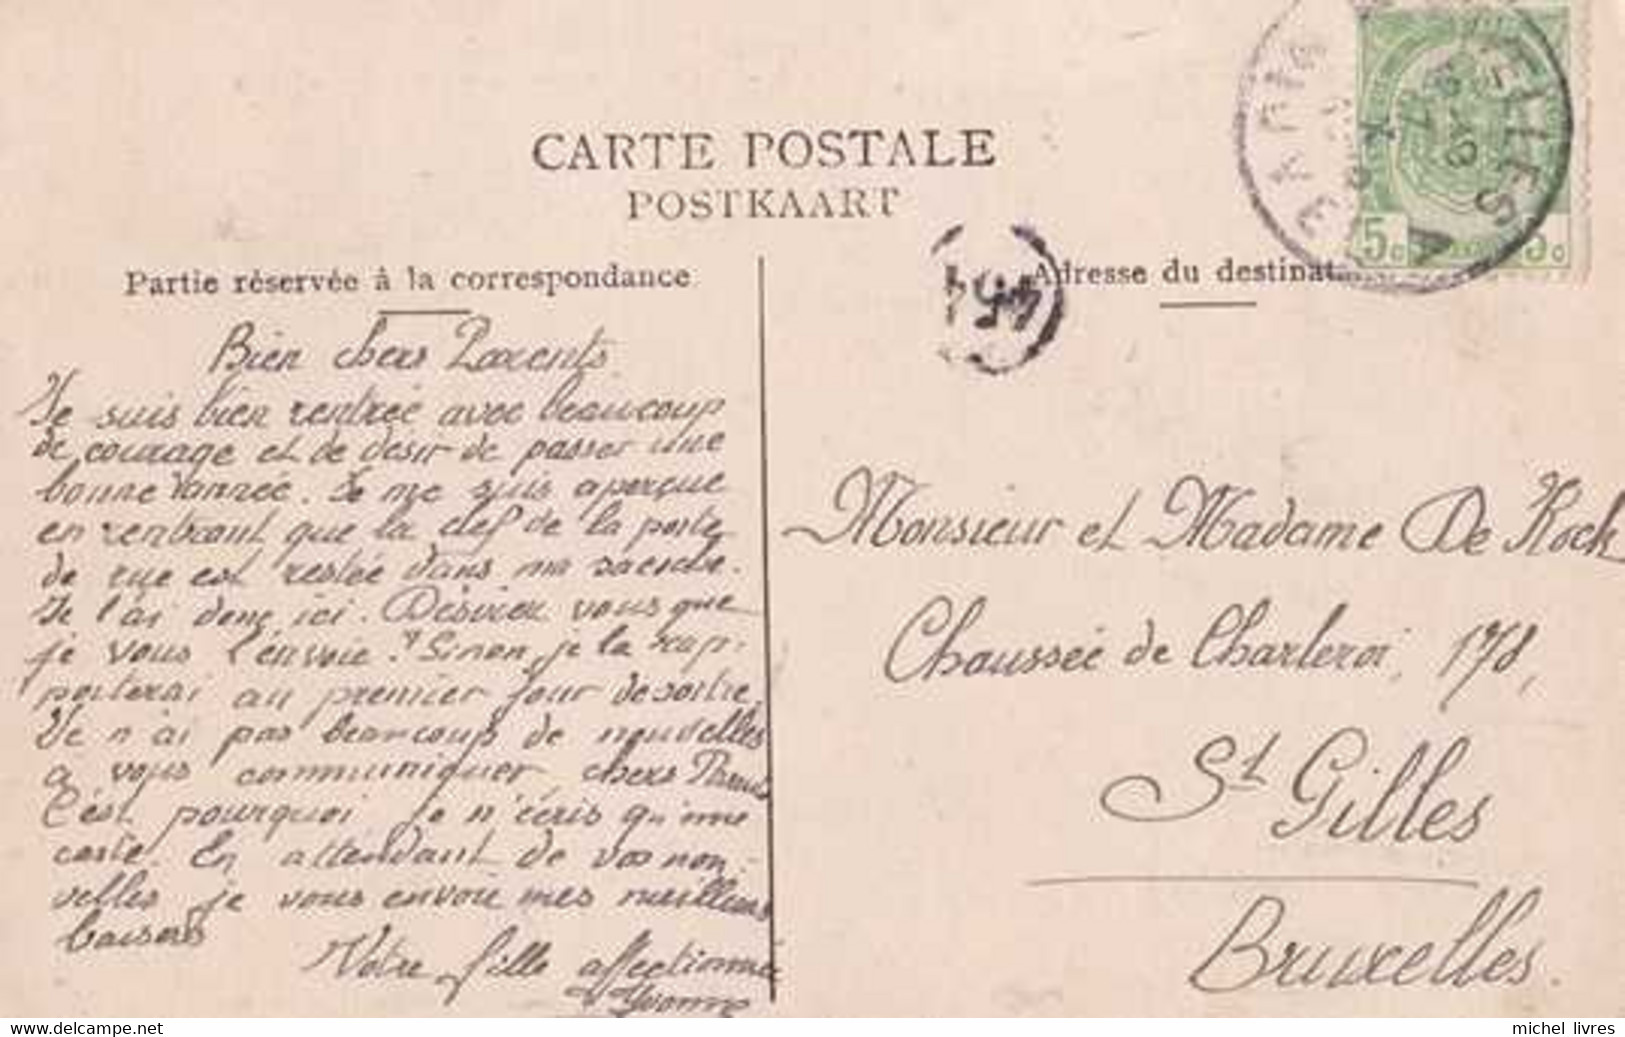 CARTE POSTALE
POSTKAART
Partie réservée à la correspondance
Bien chers Parents
Je suis bien rentrée avec beaucoup
de courage et de desir de passer une
bonne année. Je me suis aperçue
en rentrant que la clef de la porte
de rue est restée dans ma sacoche.
Je l'ai donc ici. Désirez vous que
je vous l'envoie? Sinon je la rap-
porterai au premier jour de sortie.
Je n'ai pas beaucoup de nouvelles
a vous communiquer chers Parents
C'est pourquoi je n'écris qu'une
carte. En attendant de vos nou-
velles je vous envoie mes meilleurs
baisers
Votre fille affectionnée
Yvonne
Adresse du destinat
454
5c
5c
Monsieur et Madame De Kock
Chaussée de Charleroi, 178,
St Gilles
Bruxelles.
michel livres